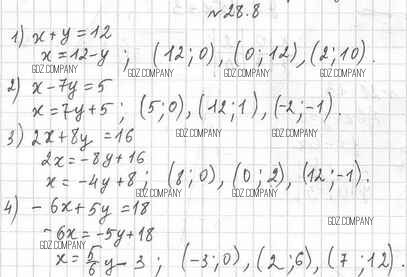 №28.8
1) x + y = 12
x = 12-y ; (12;0), (0;12), (2;10).
GDZ.COMPANY GDZ.COMPANY GDZ.COMPANY
2) x - 7y = 5
x = 7y + 5 ; (5;0), (12;1), (-2;-1).
GDZ.COMPANY GDZ.COMPANY
3) 2x + 8y = 16
2x = -8y + 16
x = -4y + 8 ; (8;0), (0;2), (12;-1).
GDZ.COMPANY GDZ.COMPANY
4) - 6x + 5y = 18
GDZ.COMPANY
-6x = -5y + 18
GDZ.COMPANY
x = 5/6 y - 3 ; (-3;0), (2;6), (7;12).